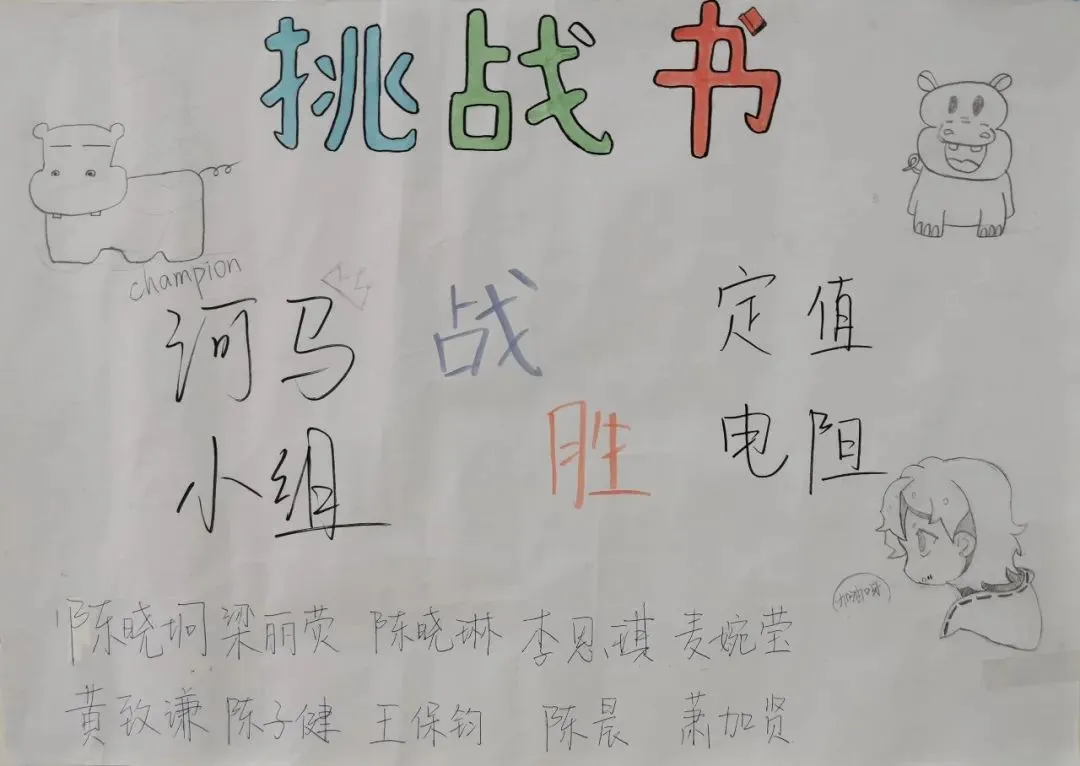 挑战书
champion
河马 战 定值
小组 胜 电阻
陈晓坷 梁丽荧 陈晓琳 李恩琪 麦婉莹
黄致谦 陈子健 王保钧 陈晨 萧加贤